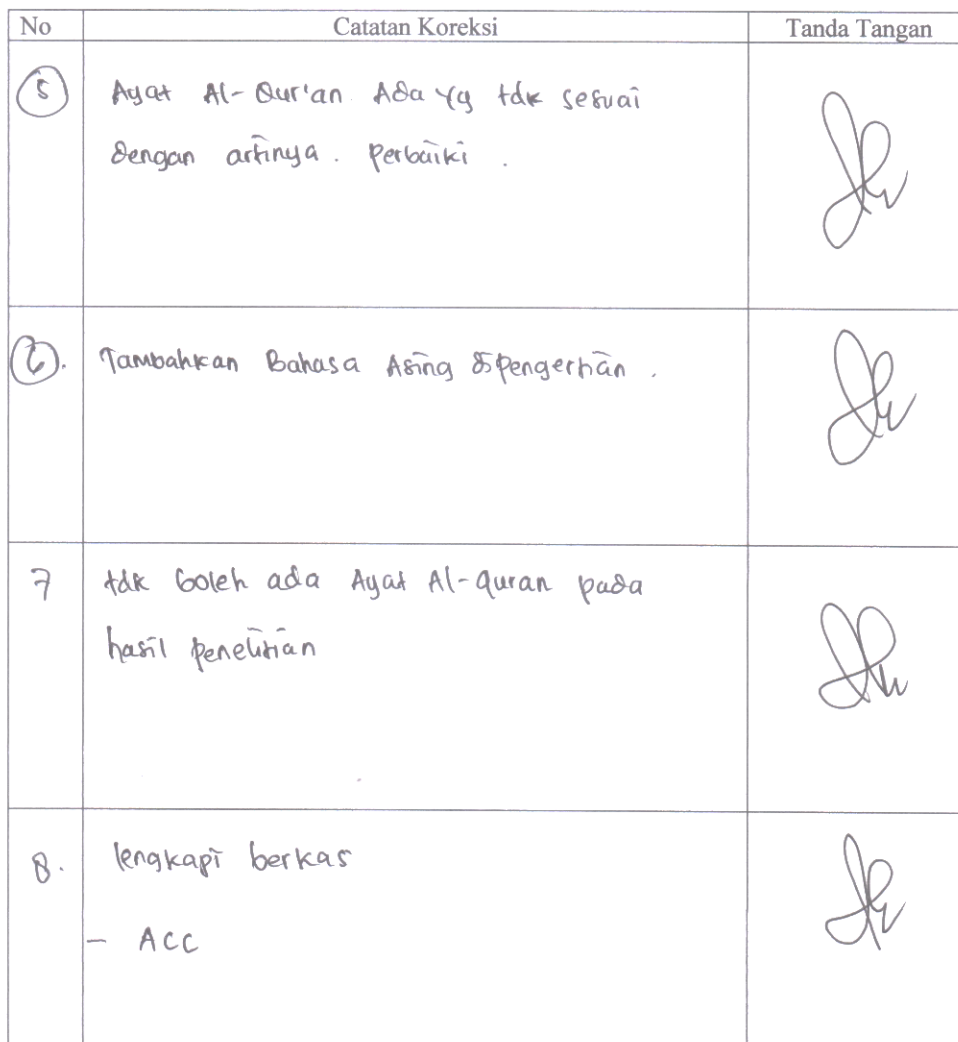 No Catatan Koreksi Tanda Tangan
5 Ayat Al-Qur'an Ada yg tdk sesuai
dengan artinya. Perbaiki.
6. Tambahkan Bahasa Asing dipengertian.
7 tdk boleh ada Ayat Al-quran pada
hasil penelitian
8. lengkapi berkas
- ACC